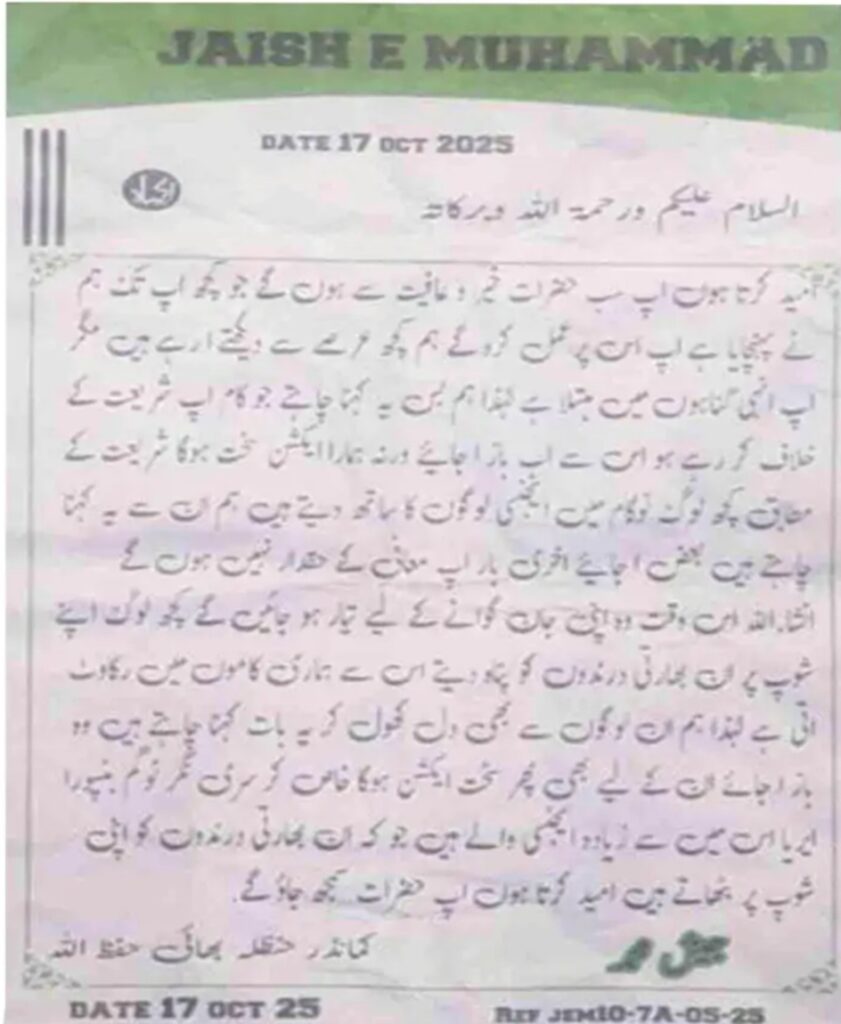 JAISH E MUHAMMAD
DATE 17 OCT 2025
السلام علیکم ورحمۃ اللہ وبرکاتہ
امید کرتا ہوں اپ سب حضرات خیر و عافیت سے ہوں گے جو کچھ اپ تک ہم
نے پہنچایا ہے اپ اس پر عمل کرو گے ہم کچھ عرصے سے دیکھتے ارہے ہیں مگر
اپ انہی گناہوں میں مبتلا ہے لہذا ہم بس یہ کہنا چاہتے جو کام اپ شریعت کے
خلاف کر رہے ہو اس سے اب باز اجائے ورنہ ہمارا ایکشن سخت ہوگا شریعت کے
مطابق کچھ لوگ نوگام میں ایجنسی لوگوں کا ساتھ دیتے ہیں ہم ان سے یہ کہنا
چاہتے ہیں اجائے اخری بار اپ معافی کے حقدار نہیں ہوں گے
انشاءاللہ اس وقت وہ اپنی جان گوانے کے لیے تیار ہو جائیں گے کچھ لوگ اپنے
شوپ پر ان بھارتی درندوں کو پناہ دیتے اس سے ہماری کاموں میں رکاوٹ
اتی ہے لہذا ہم ان لوگوں سے بھی دل کھول کر یہ بات کہنا چاہتے ہیں وہ
باز اجائے ان کے لیے بھی پھر سخت ایکشن ہوگا خاص کر سری نگر نوگم بنپورا
ایریا اس میں سے زیادہ ایجنسی والے ہیں جو کہ ان بھارتی درندوں کو اپنی
شوپ پر بٹھاتے ہیں امید کرتا ہوں اپ حضرات سمجھ جاؤ گے۔
کمانڈر حنظلہ بھائی حفظ اللہ
جیش محمد
DATE 17 OCT 25
REF JEM10-7A-05-25